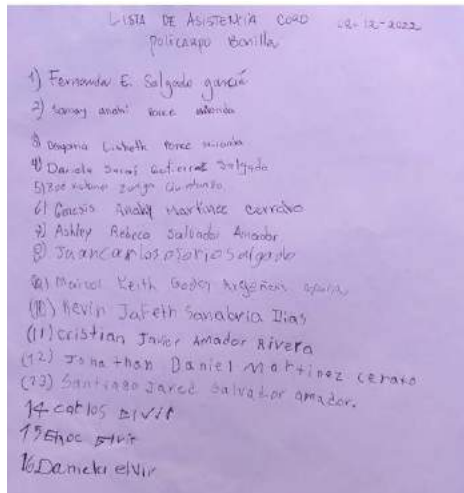 LISTA DE ASISTENCIA CORO 12-2022
Policarpo Bonilla
1) Fernanda E. Salgado garcía
2) anahi Ponce
3) Lisbeth Ponce miranda
4) Daniela Saraí Gutierrez Salgado
5) zuniga
6) Genesis Anahy Martinez cerrato
7) Ashley Rebeca Salvador Amador.
8) Juan carlos osorio salgado
9) Keith Godoy
(10) Kevin Jafeth Sanabria Dias
(11) cristian Javier Amador Rivera
(12) Jonathan Daniel Martinez cerato
(13) Santiago Jared Salvador amador.
14 carlos elvir
15 Enoc elvir
16 Daniela elvir